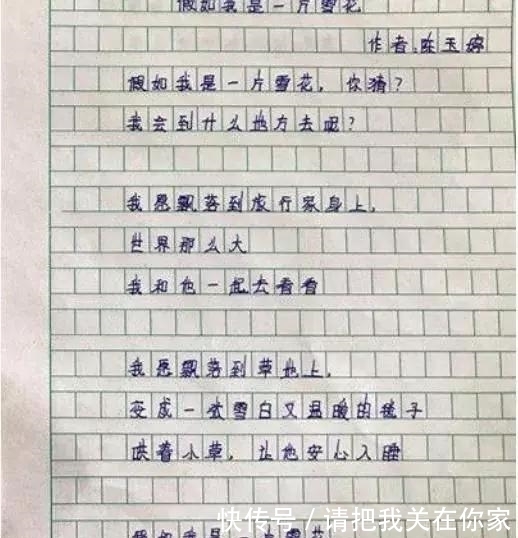 假如我是一片雪花
作者:陈玉婷
假如我是一片雪花,你猜?
我会到什么地方去呢?
我愿飘落到旅行家身上,
世界那么大
我和他一起去看看
我愿飘落到草地上,
变成一张雪白又温暖的毯子
哄着小草,让他安心入睡
假如我是一片雪花
快传号/请把我关在你家